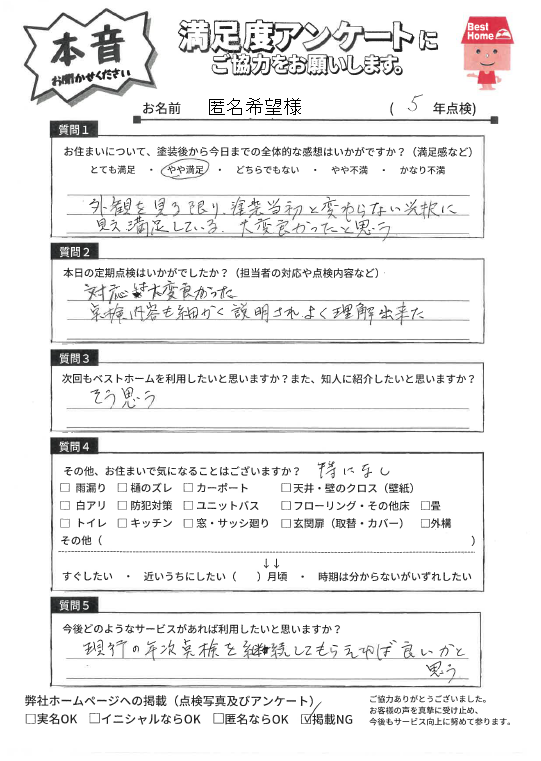 本音
お聞かせください
満足度アンケートに
ご協力をお願いします。
Best Home
お名前 匿名希望様 ( 5 年点検)
質問1
お住まいについて、塗装後から今日までの全体的な感想はいかがですか？（満足感など）
とても満足 ・ やや満足 ・ どちらでもない ・ やや不満 ・ かなり不満
外観を見る限り、塗装当初と変わらない光沢に
見え満足している。大変良かったと思う
質問2
本日の定期点検はいかがでしたか？（担当者の対応や点検内容など）
対応は大変良かった
点検内容も細かく説明されよく理解出来た
質問3
次回もベストホームを利用したいと思いますか？また、知人に紹介したいと思いますか？
そう思う
質問4
その他、お住まいで気になることはございますか？ 特になし
□ 雨漏り □ 樋のズレ □ カーポート □天井・壁のクロス（壁紙）
□ 白アリ □ 防犯対策 □ ユニットバス □フローリング・その他床 □畳
□ トイレ □ キッチン □ 窓・サッシ廻り □玄関扉（取替・カバー） □外構
その他（ ）
↓↓
すぐしたい ・ 近いうちにしたい（ ）月頃 ・ 時期は分からないがいずれしたい
質問5
今後どのようなサービスがあれば利用したいと思いますか？
現行の年次点検を継続してもらえれば良いかと
思う
弊社ホームページへの掲載（点検写真及びアンケート）
□実名OK □イニシャルならOK □匿名ならOK ☑掲載NG
ご協力ありがとうございました。
お客様の声を真摯に受け止め、
今後もサービス向上に努めて参ります。